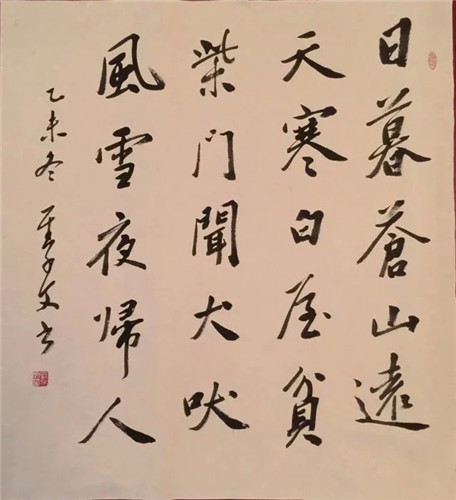 日暮蒼山遠
天寒白屋貧
柴門聞犬吠
風雪夜歸人
乙未冬
文书